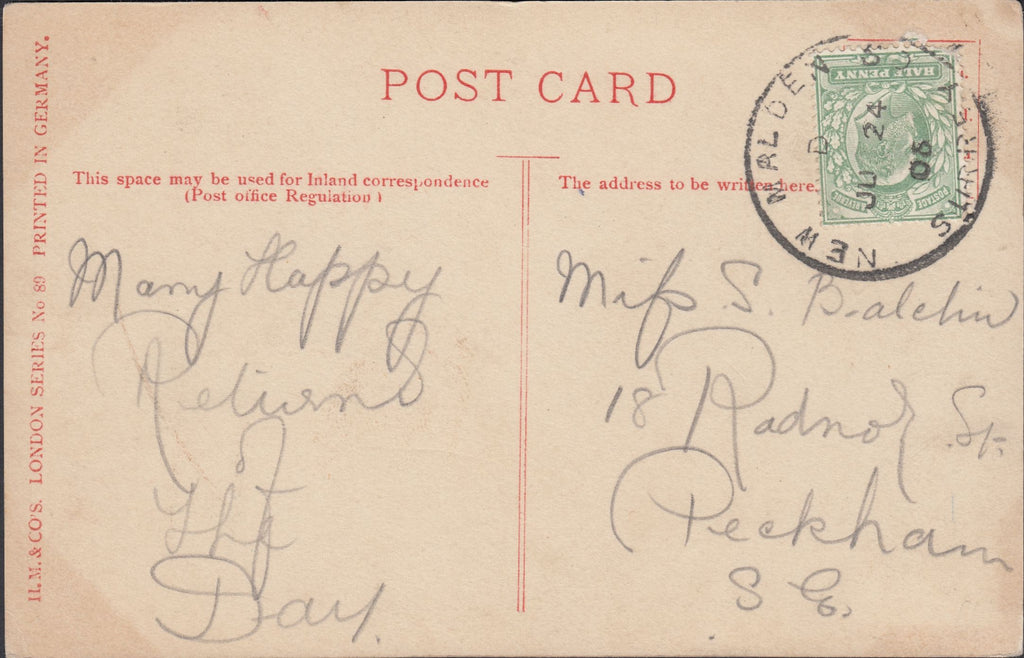 POST CARD
This space may be used for Inland correspondence
(Post office Regulation)
The address to be written here.
Many Happy
Returns
of
The
Day.
Miss S. Balchin
18 Radnor St.
Peckham
S.E.
NEW MALDEN
SURREY
D
JU 24
06
HALF PENNY
POSTAGE
H.M. & CO'S. LONDON SERIES No 89 PRINTED IN GERMANY.